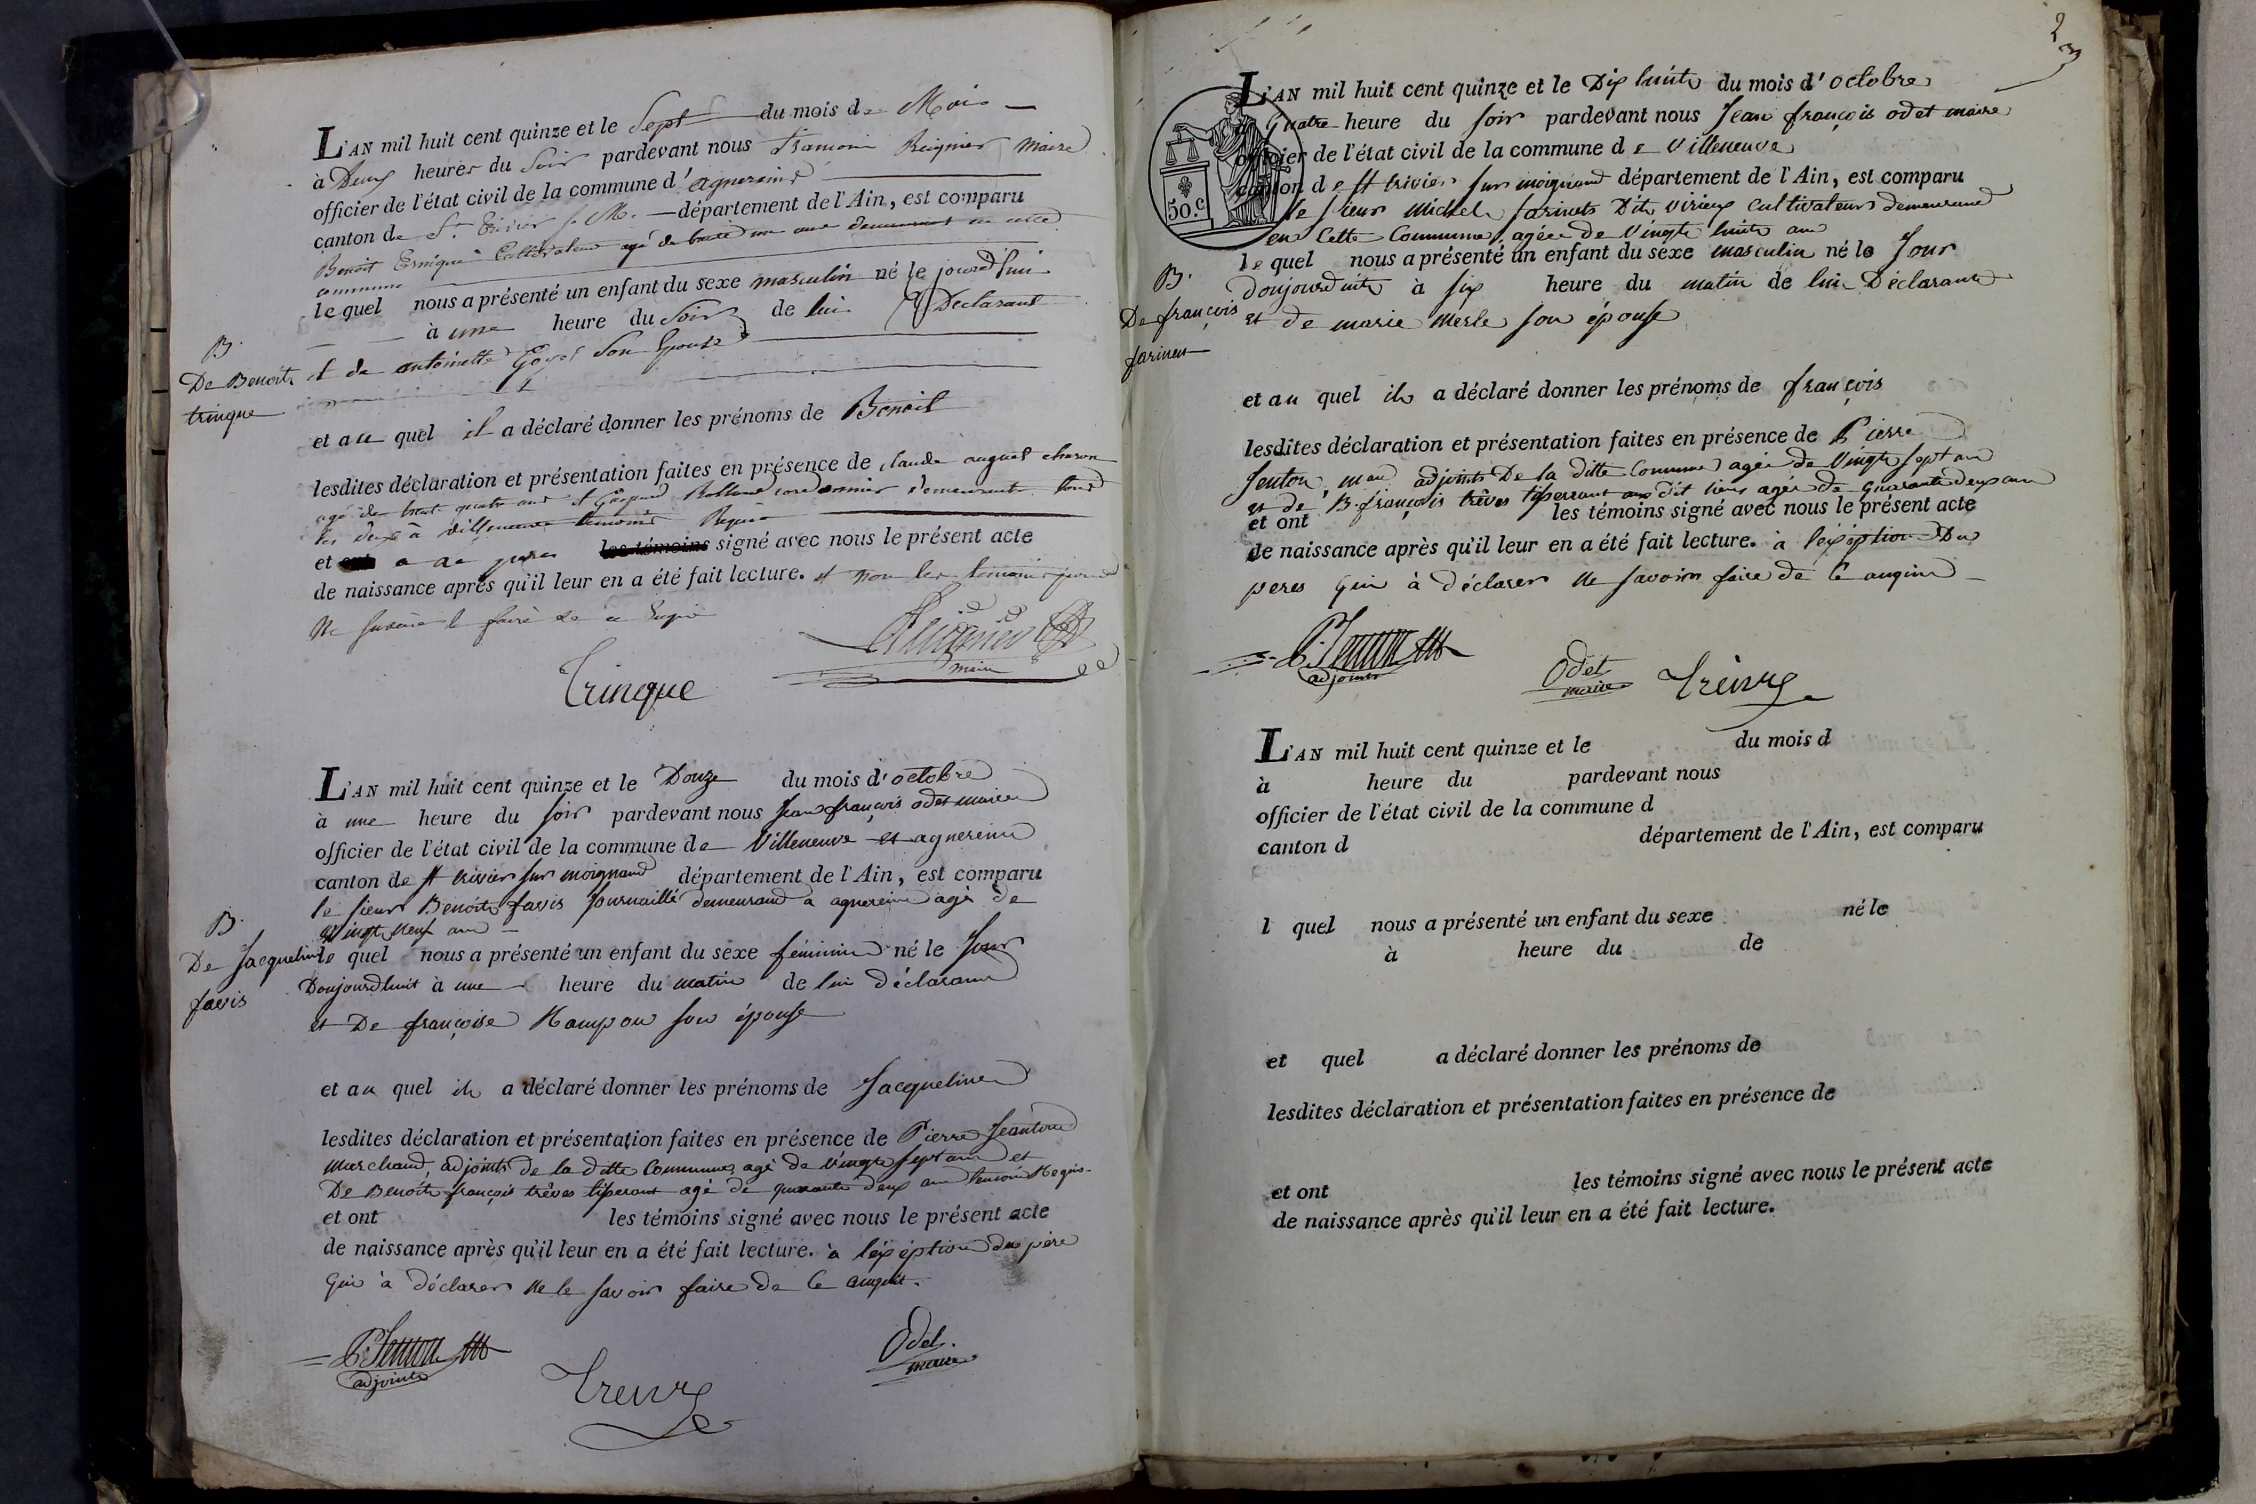 L'AN mil huit cent quinze et le Sept du mois de Mai
à Deux heures du Soir pardevant nous Reignier Maire
officier de l'état civil de la commune d'agnereins
canton de St. Trivier s. M. département de l'Ain, est comparu
Benoit Cultivateur agé de trente un ans demeurant en cette
commune
le quel nous a présenté un enfant du sexe masculin né le jourd'hui
à une heure du Soir de lui Déclarant
B.
De Benoit
trinque
et de antoinette Son Epouse
et au quel il a déclaré donner les prénoms de Benoit
lesdites déclaration et présentation faites en présence de claude charon
agé de trent quatre ans et Gaspard Rolland cordonnier demeurants tous
les deux à villeneuve témoins Requis
et ont le pere les témoins signé avec nous le présent acte
de naissance après qu'il leur en a été fait lecture. et non les temoins pour
Ne savoir le faire de ce Requis
Reignier
maire
Trinque
L'AN mil huit cent quinze et le Douze du mois d'octobre
à une heure du soir pardevant nous Jean françois odet maire
officier de l'état civil de la commune de Villeneuve et agnereins
canton de st trivier sur moignand département de l'Ain, est comparu
le sieur Benoit favis journaillé demeurand a agnereins agé de
vingt neuf ans
B.
De Jacqueline
favis
le quel nous a présenté un enfant du sexe féminin né le Jour
Doujourdhuit à une heure du matin de lui déclarant
et De françoise son épouse
et au quel il a déclaré donner les prénoms de Jacqueline
lesdites déclaration et présentation faites en présence de Pierre Jeanton
Marchand, adjoint de la ditte Commune, agé de vingt sept ans et
De Benoit françois trêves tisserant agé de quarante deux ans temoin Requis
et ont les témoins signé avec nous le présent acte
de naissance après qu'il leur en a été fait lecture. à léxéption du père
Qui à déclarer ne le savoir faire de ce enquit.
P. Jenton
adjoint
Odet
maire
Treive
2
3
L'AN mil huit cent quinze et le Dix huit du mois d'octobre
a Quatre heure du soir pardevant nous Jean françois odet maire
officier de l'état civil de la commune de Villeneuve
canton de st trivier sur moignand département de l'Ain, est comparu
50.c
le sieur Michel farinet Dit virieux Cultivateur demeurand
en Cette Commune, agée de Vingt huit ans
le quel nous a présenté un enfant du sexe masculin né le Jour
B.
De françois
farinet
doujourduit à six heure du matin de lui Déclarant
et de marie Merle son épouse
et au quel il a déclaré donner les prénoms de françois
lesdites déclaration et présentation faites en présence de Pierre
Jenton, mard adjoint De la ditte Commune agée de Vingt sept ans
et de B. françois trêves tisserant au dit lieu agée de quarante deux ans
et ont les témoins signé avec nous le présent acte
de naissance après qu'il leur en a été fait lecture. à léxéption Du
peres Qui à déclarer Ne savoir faire de ce
P. Jenton
adjoint
Odet
maire
Treive
L'AN mil huit cent quinze et le du mois d
à heure du pardevant nous
officier de l'état civil de la commune d
canton d département de l'Ain, est comparu
l quel nous a présenté un enfant du sexe né le
à heure du de
et quel a déclaré donner les prénoms de
lesdites déclaration et présentation faites en présence de
et ont les témoins signé avec nous le présent acte
de naissance après qu'il leur en a été fait lecture.